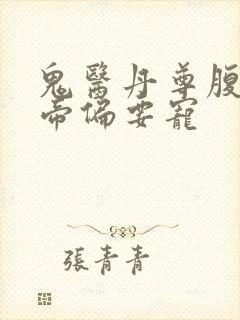 鬼醫丹尊腹
帝偏要寵
張青青